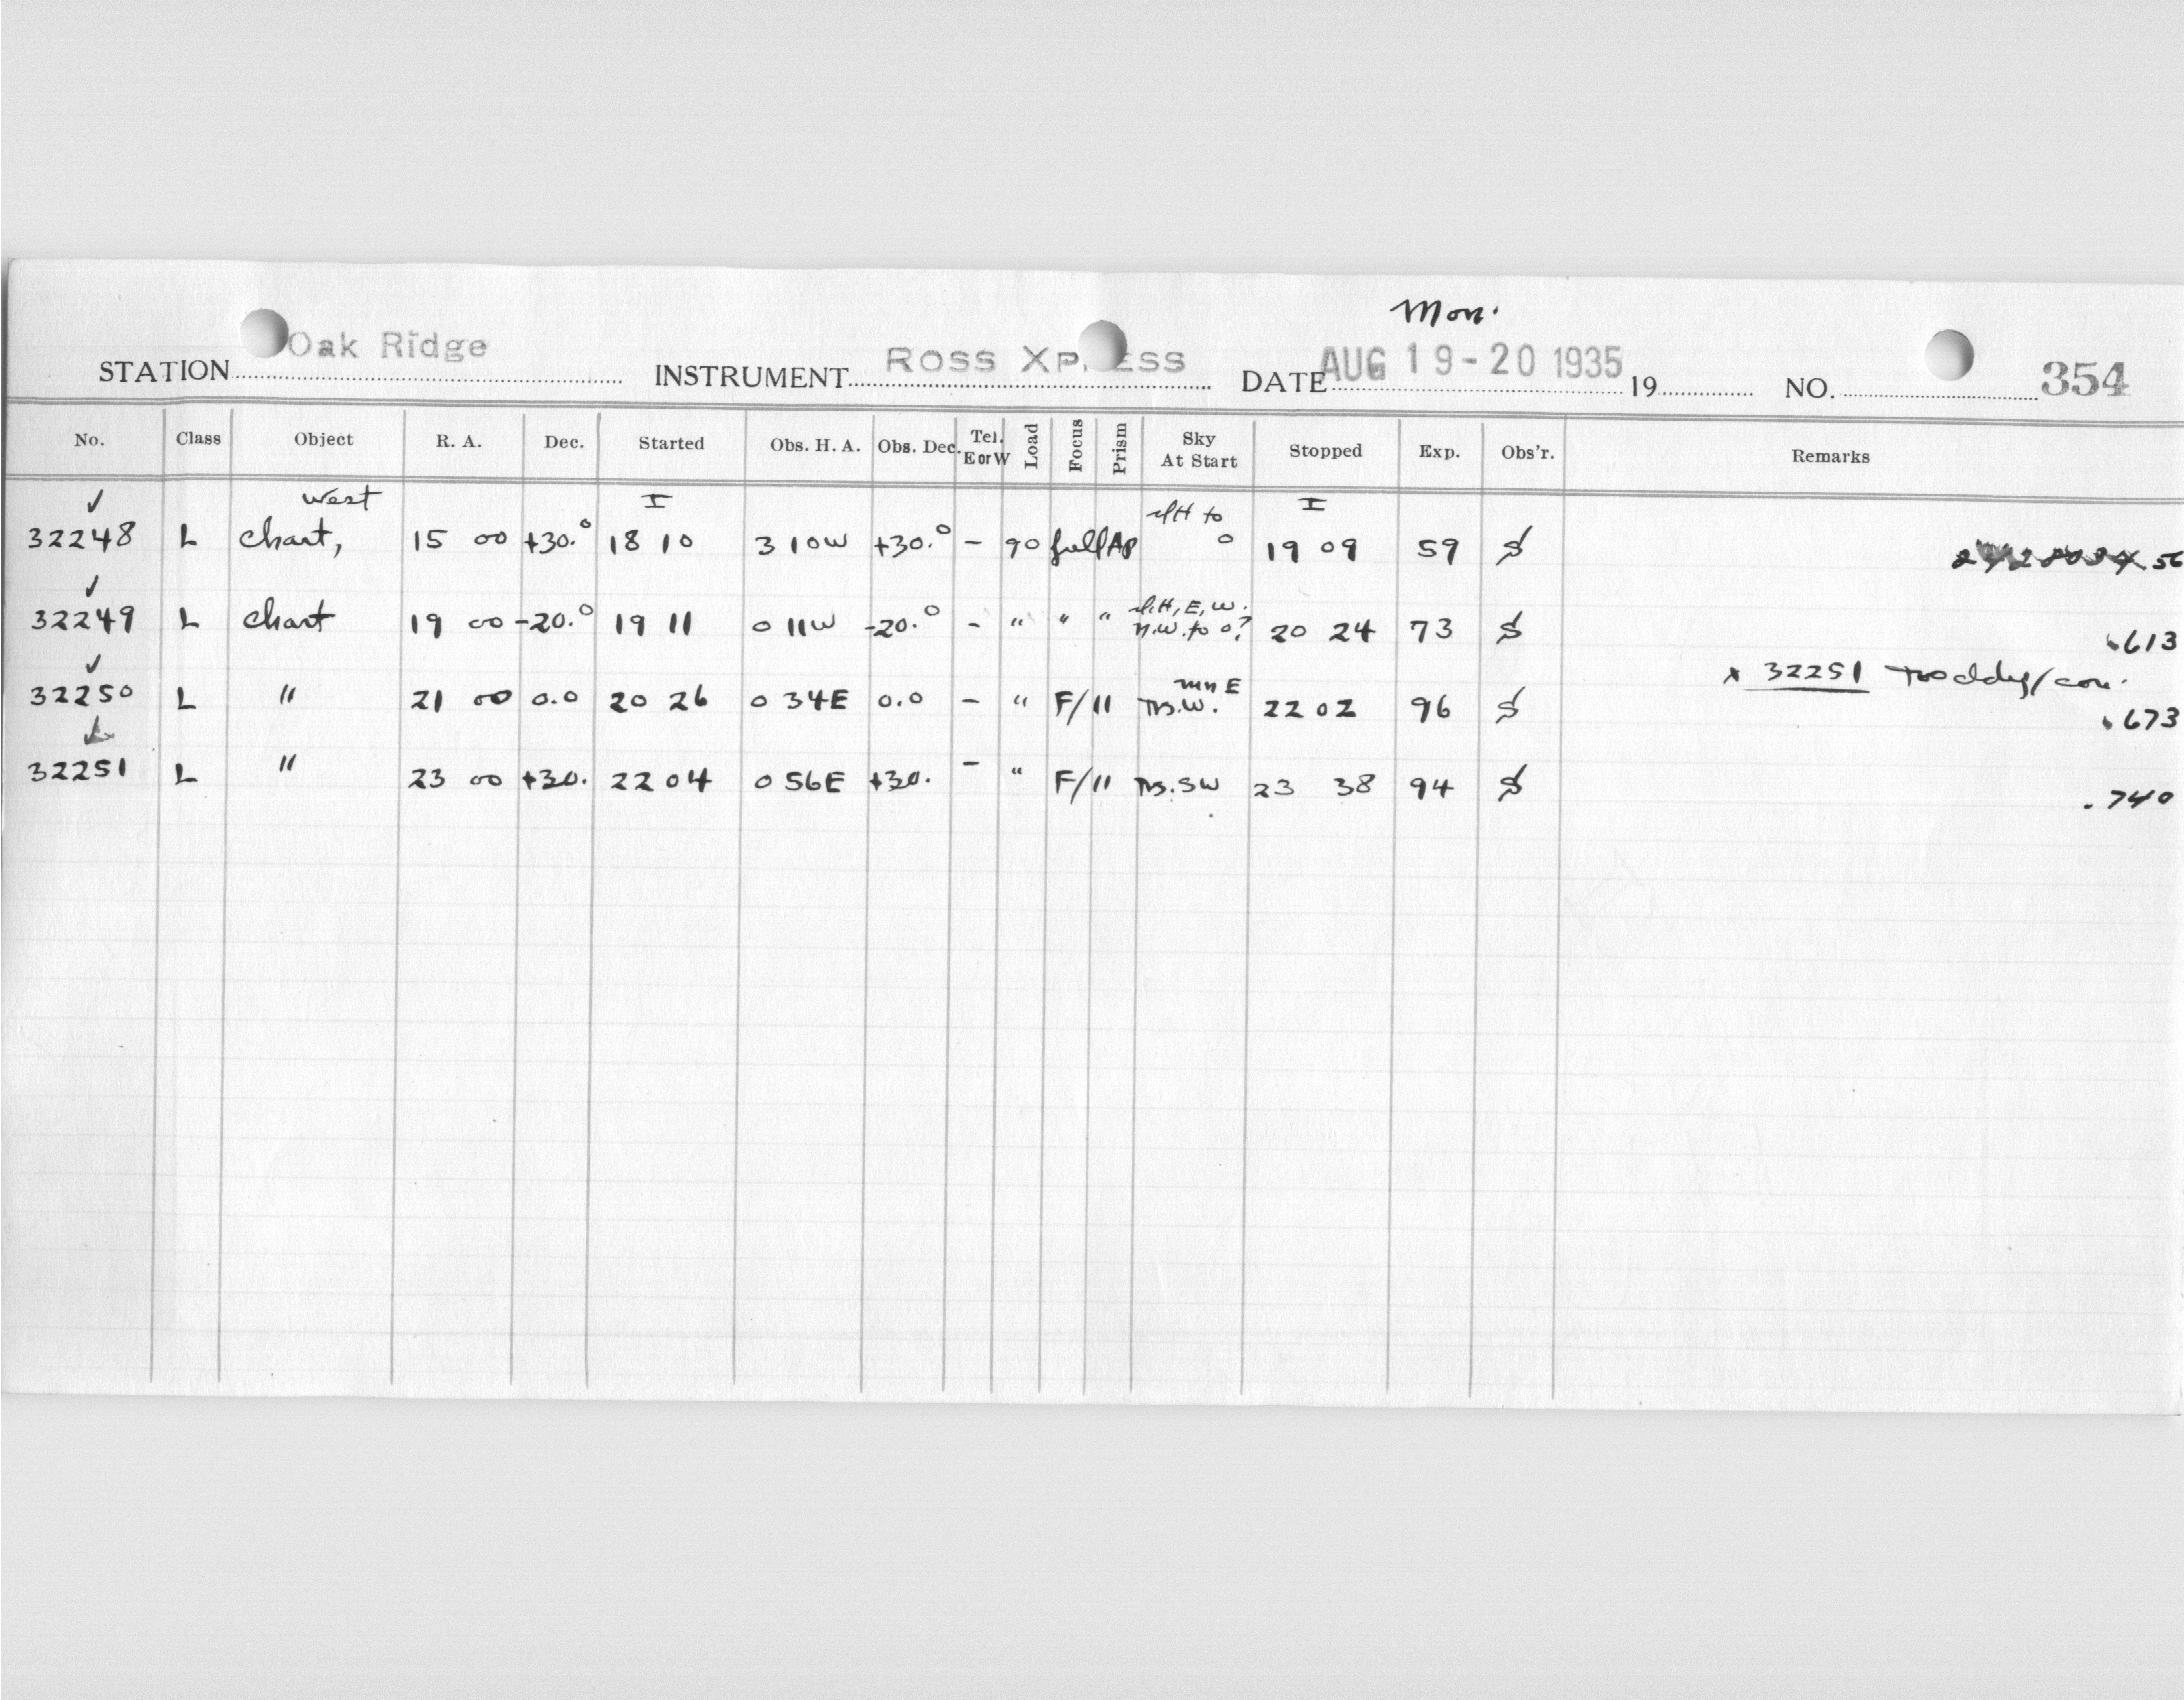 Mon.
STATION Oak Ridge INSTRUMENT ROSS XP ESS DATE AUG 19-20 1935 19 NO. 354
No. Class Object R. A. Dec. Started Obs. H. A. Obs. Dec. Tel. E or W Load Focus Prism Sky At Start Stopped Exp. Obs'r. Remarks
✓ west I to I
32248 L chart, 15 00 +30.° 18 10 3 10W +30.° - 90 full Ap 0 19 09 59 S
✓
32249 L chart 19 00 -20.° 19 11 0 11W -20.° - " " " H, E, W. N.W. to 0? 20 24 73 S .613
✓ x 32251
32250 L " 21 00 0.0 20 26 0 34E 0.0 - " F/11 E W. 22 02 96 S .673
32251 L " 23 00 +30. 22 04 0 56E +30. - " F/11 SW 23 38 94 S .740